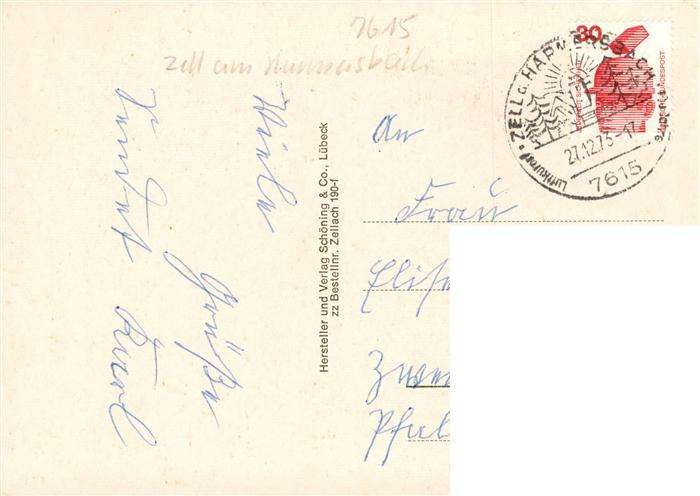 7615
Zell am Harmersbach
Viele
Grüße
Karl
Hersteller und Verlag Schöning & Co., Lübeck
zz Bestellnr. Zellach 190-f
An
Frau
Zwei
Pfal
30
DEUTSCHE BUNDESPOST
ZELL A. HARMERSBACH
27.12.73-17
7615
Luftkurort